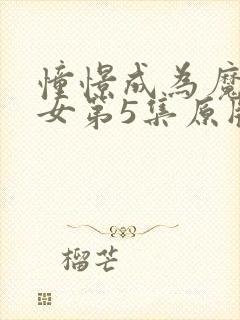 憧憬成為魔
女第5集原
榴芒